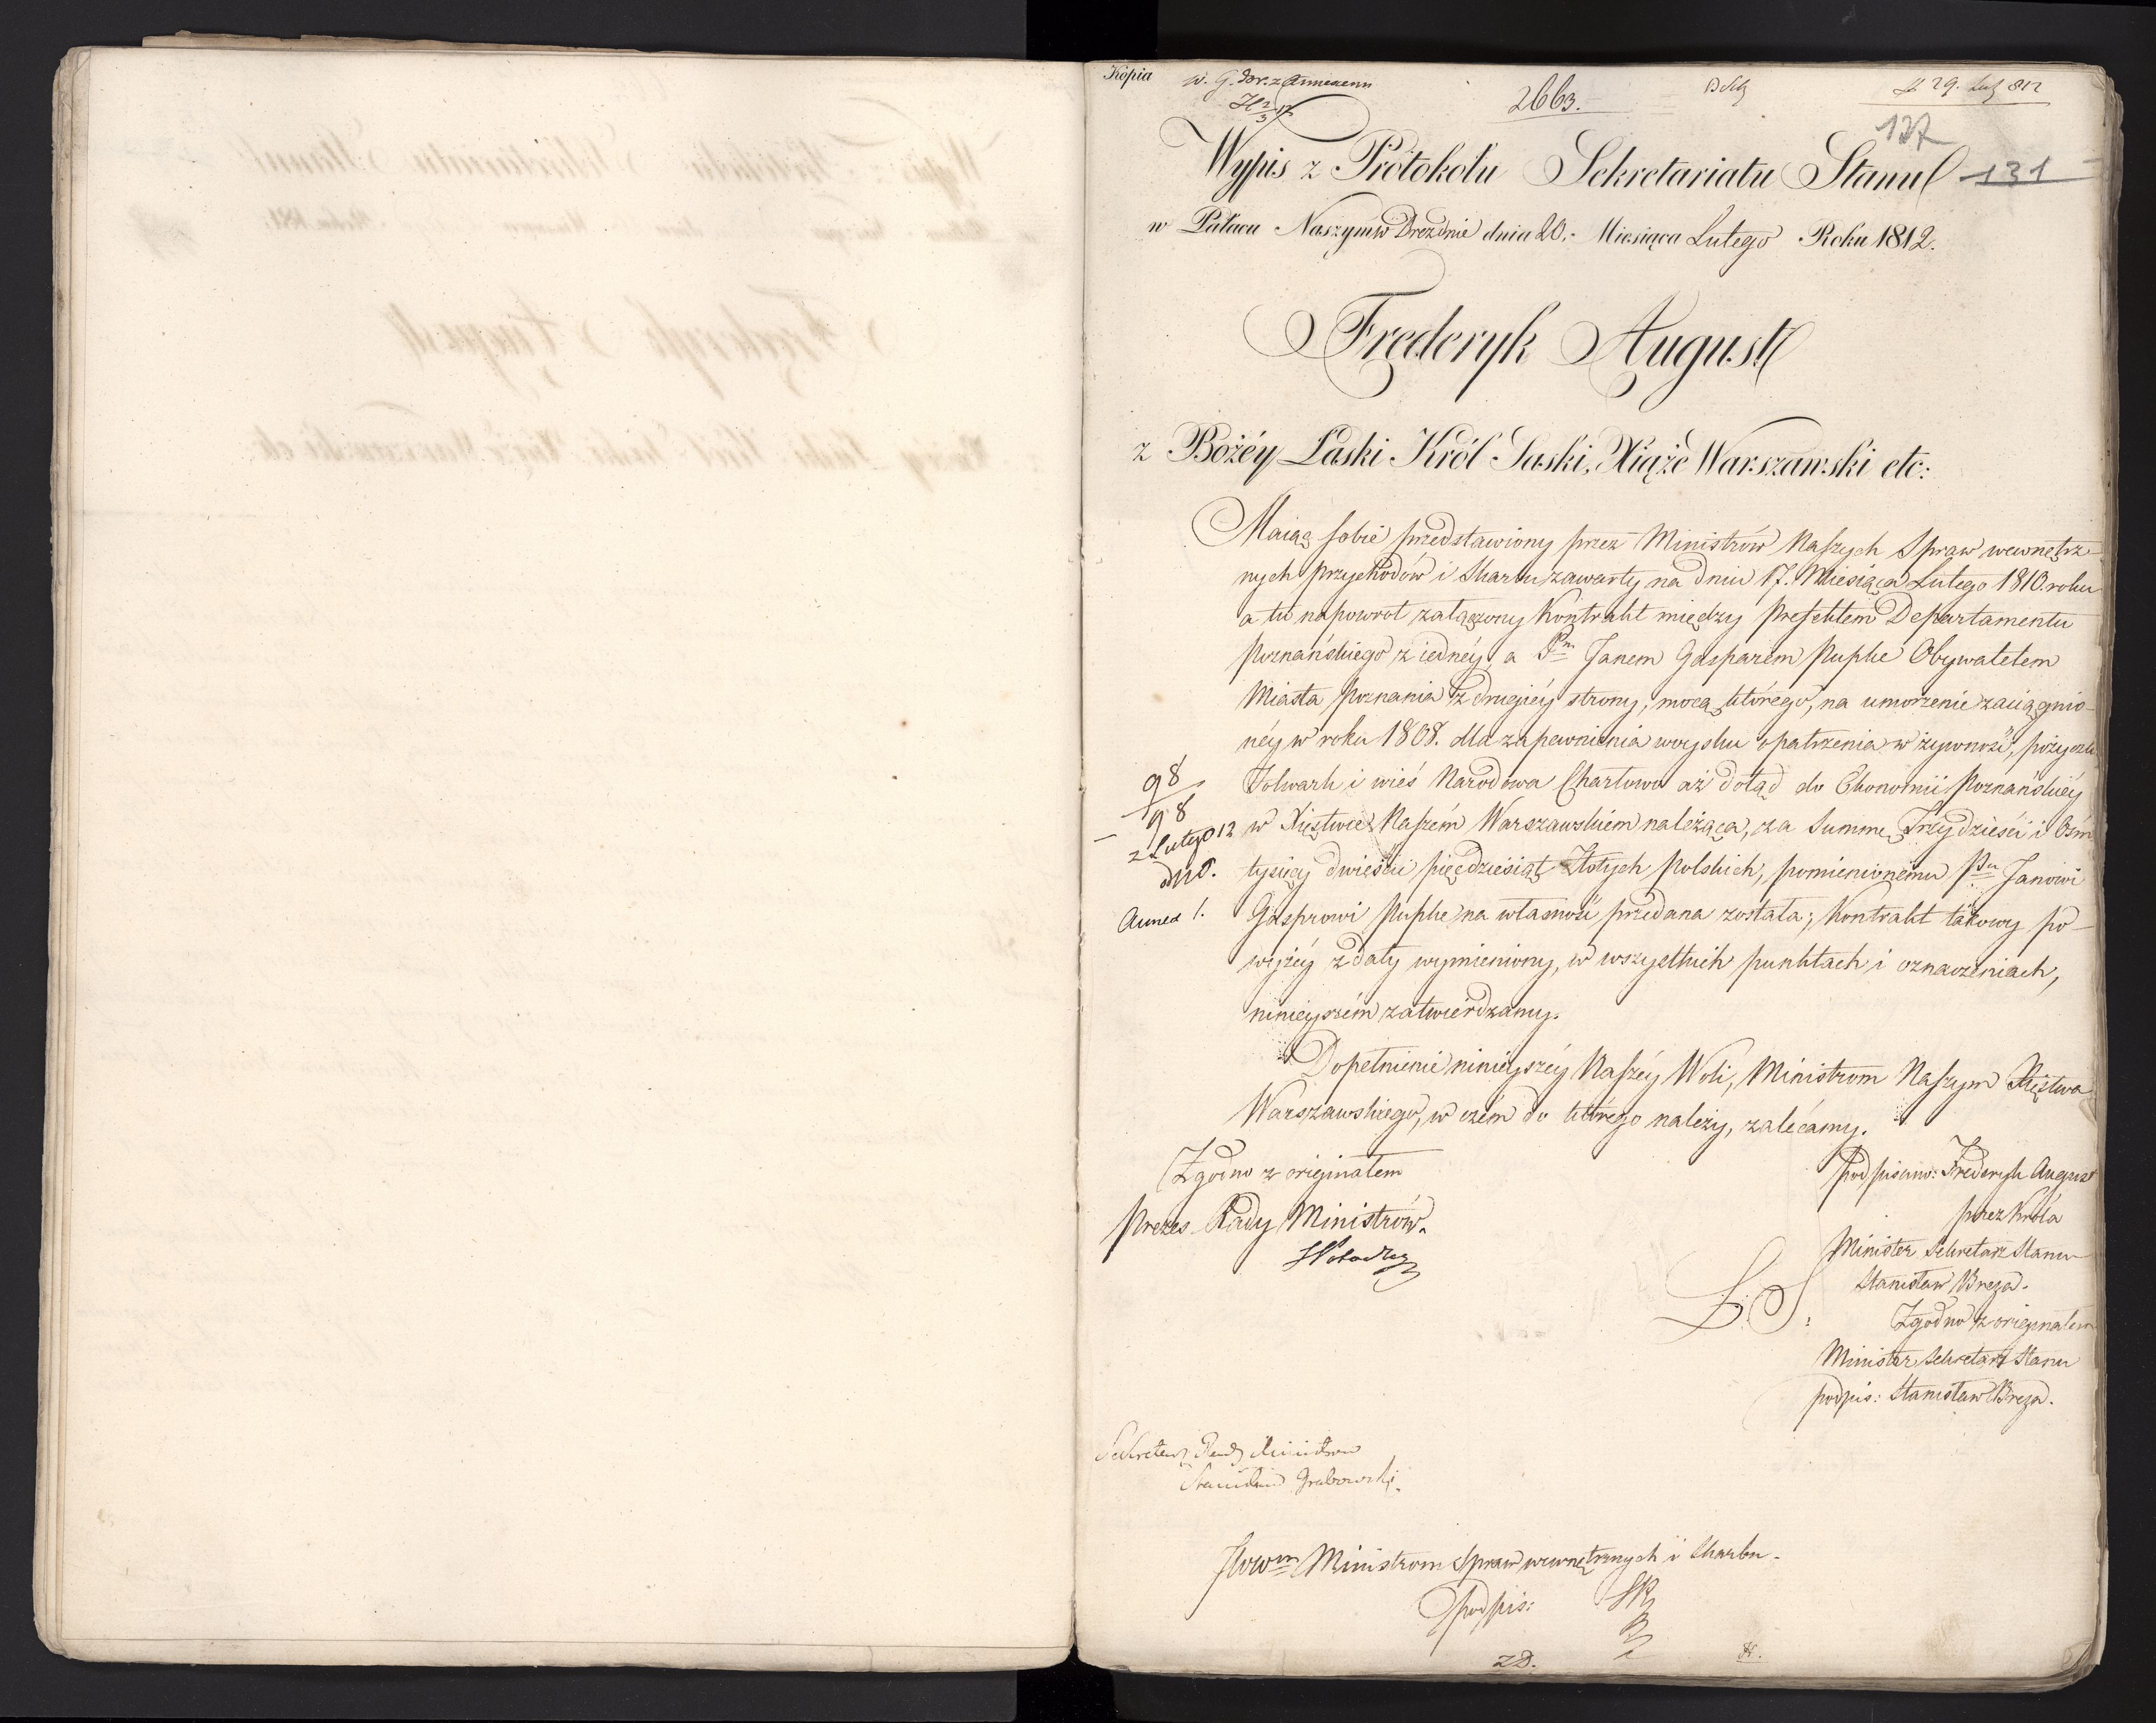 Kopia
2663.
d 29. Lut 812
137
Wypis z Protokołu Sekretariatu Stanu
131
w Pałacu Naszym w Dreznie dnia 20. Miesiąca Lutego Roku 1812.
Frederyk August
z Bożéy Łaski Król Saski, Xiąże Warszawski etc:
Maiąc sobie przedstawiony przez Ministrów Naszych Spraw wewnętrz-
nych przychodów i Skarbu zawarty na dniu 17. Miesiąca Lutego 1810. roku
a tu napowrot załączony Kontrakt między Prefektem Departamentu
Poznańskiego z iednéy, a Pm Janem Gasparem Pupke Obywatelem
Miasta Poznania z drugiéy strony, mocą którego, na umorzenie zaciągnio-
néy w roku 1808. dla zapewnienia woysku opatrzenia w żywność, pożyczki
Folwark i wieś Narodowa Chartowo aż dotąd do Ekonomii Poznańskiéy
98
98
z Lutego 12
w Xięstwie Naszém Warszawskiem należąca, za Summę Trzydzieści i Ośm
tysięcy dwieście pięćdziesiąt Złotych Polskich, pomienionemu Pu Janowi
Annex 1.
Gasprowi Pupke na własność przedana została; Kontrakt takowy po-
wyżéy z daty wymieniony, w wszystkich punktach i oznaczeniach,
ninieyszém zatwierdzamy.
Dopełnienie ninieyszéy Naszéy Woli, Ministrom Naszym Xięstwa
Warszawskiego, w czém do którego należy, zalecamy.
Zgodno z originałem
Prezes Rady Ministrów.
podpisano: Frederyk August
przez Króla
Minister Sekretarz Stanu
Stanisław Breza.
L. S.
Zgodno z originałem
Minister Sekretarz Stanu
podpis: Stanisław Breza.
Sekretarz Rady Ministrow
Stanisław Grabowski.
JWWm Ministrom Spraw wewnętrznych i Skarbu.
podpis: